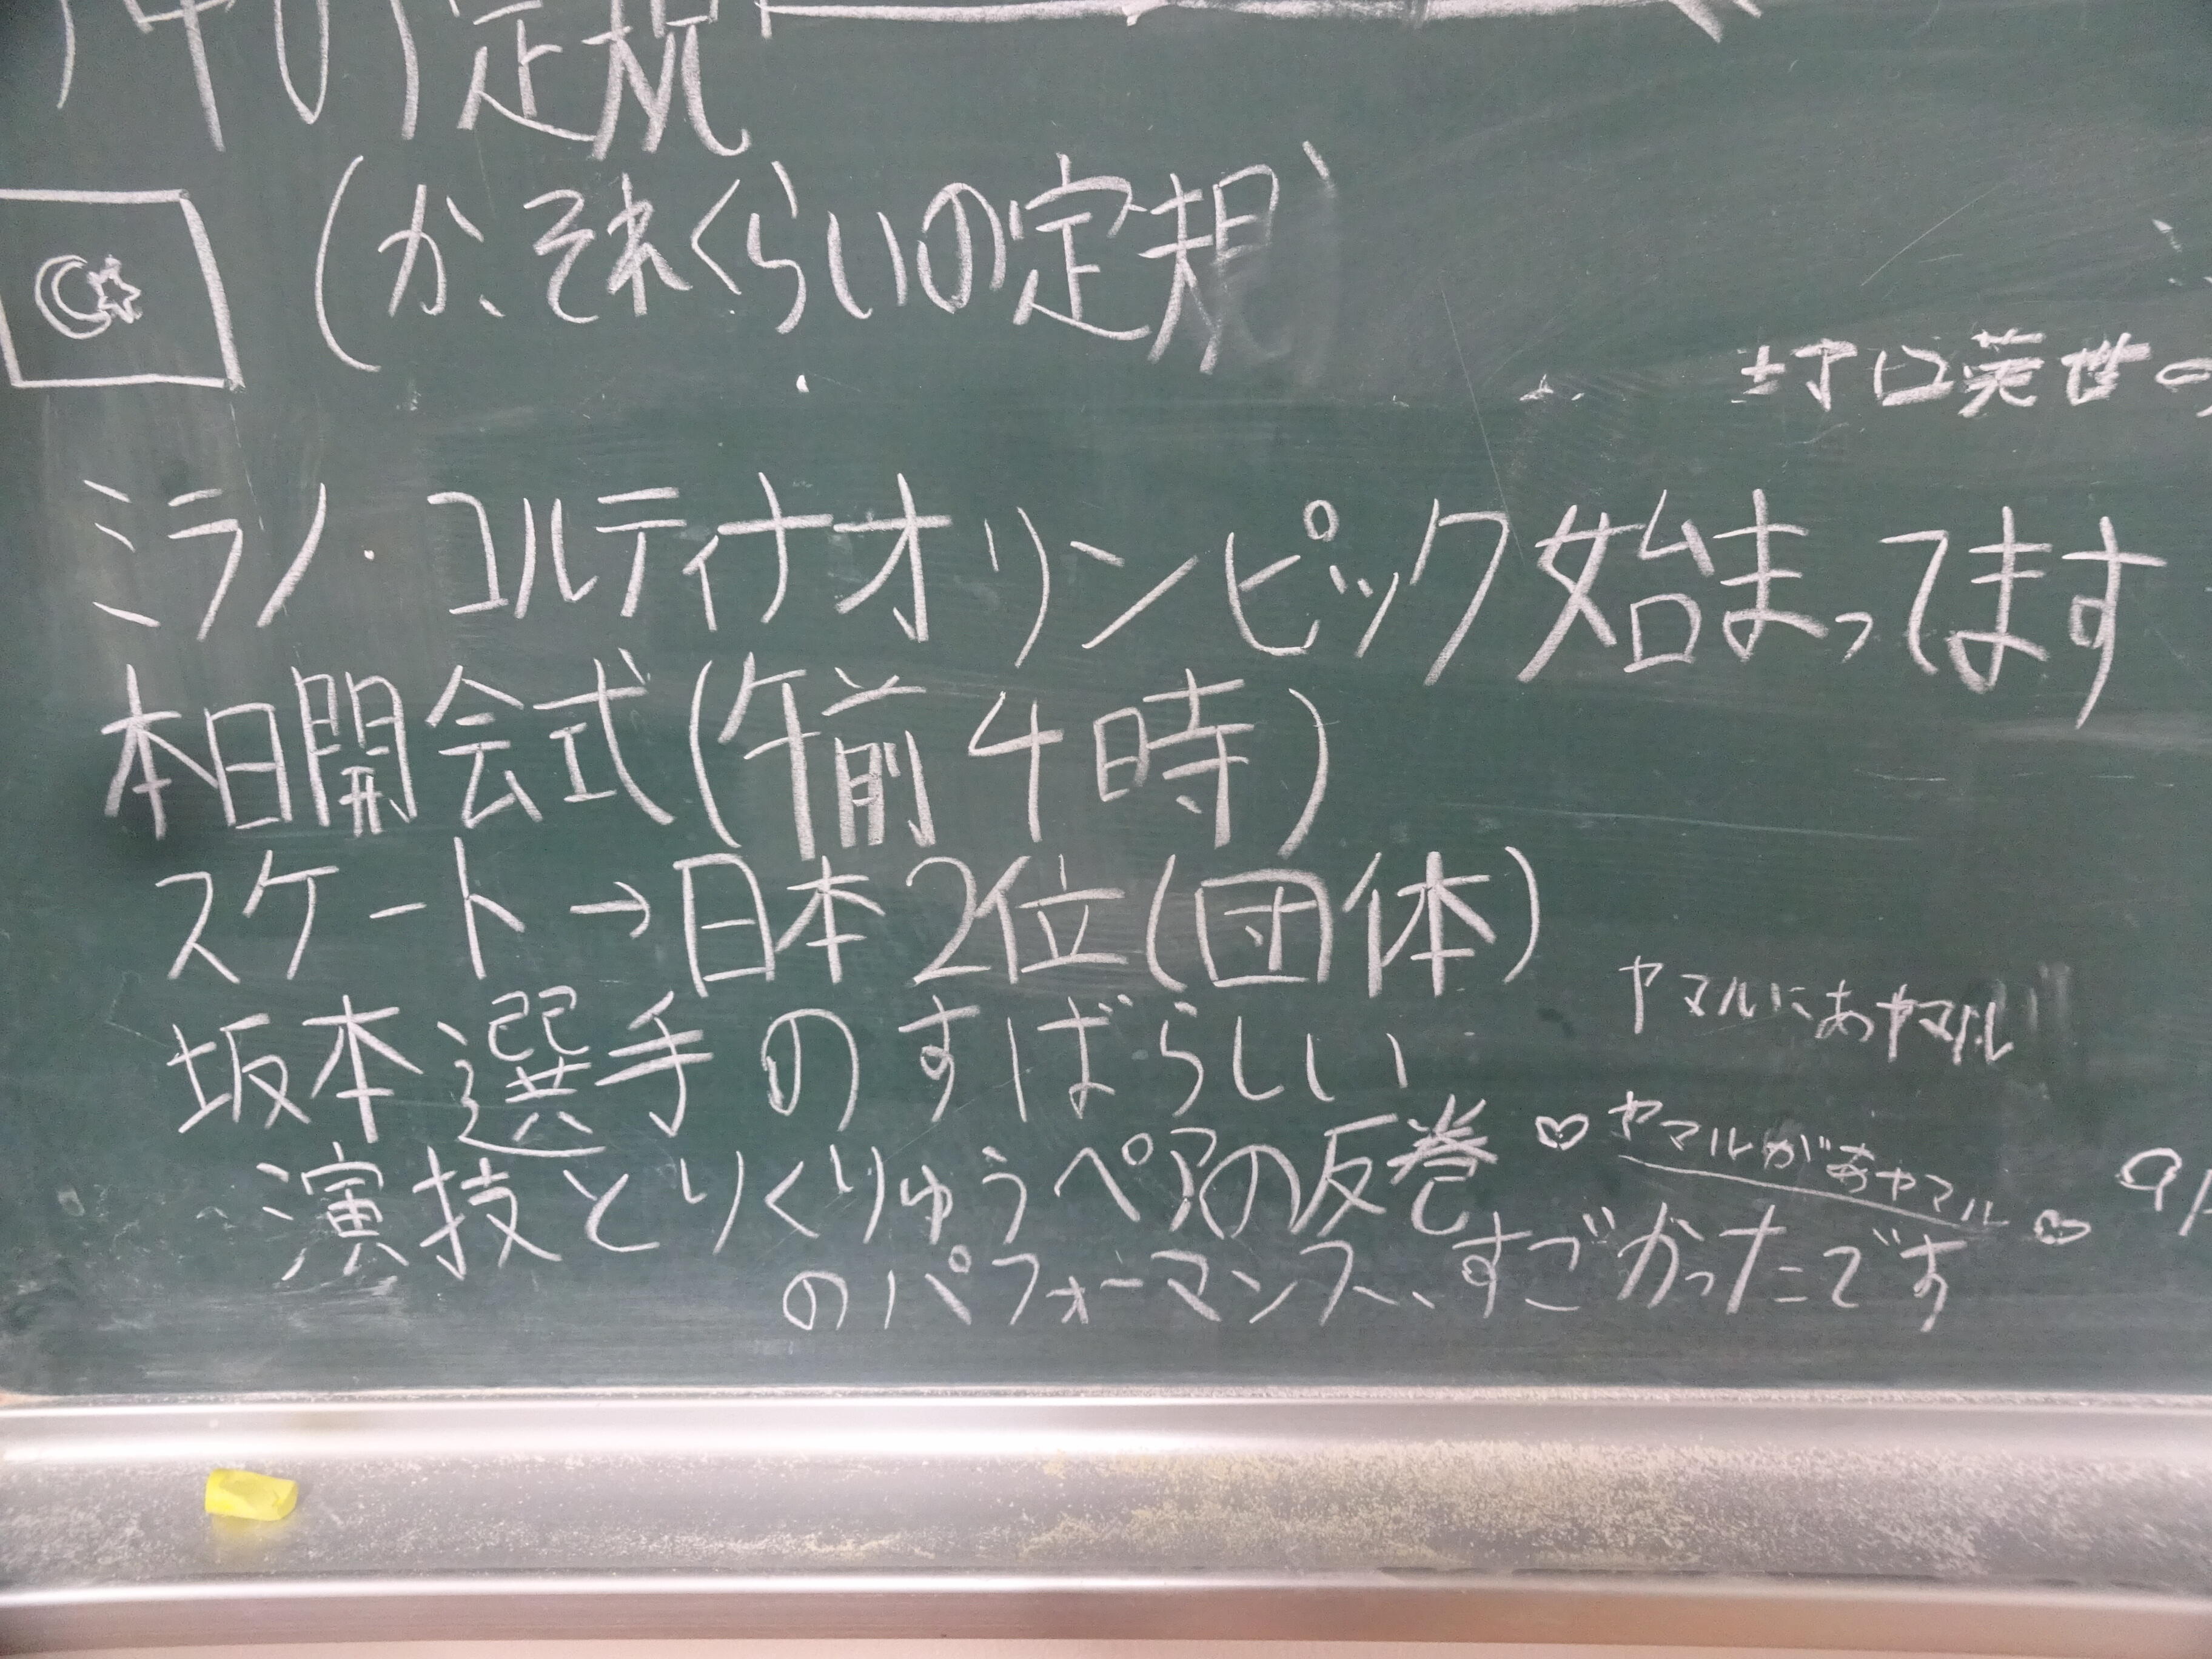 定規
(か、それくらいの定規)
ミラノ・コルティナオリンピック始まってます
本日開会式(午前4時)
スケート→日本2位(団体)
坂本選手のすばらしい
演技とりくりゅうペアの反巻
のパフォーマンス、すごかったです
ヤマルにあヤマル
♡ヤマルがあヤマル♡